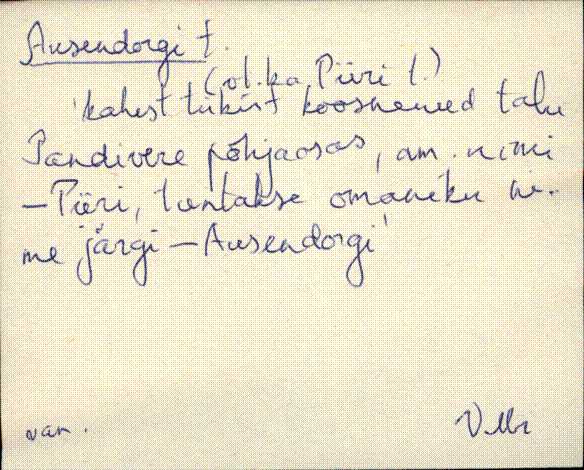 Ausendorgi t.
(vt. ka Piiri t.)
'kahest tükist koosnenud talu
Pandivere põhjaosas, am. nimi
– Piiri, tuntakse omaniku ni-
me järgi – Ausendorgi'
van. VMr